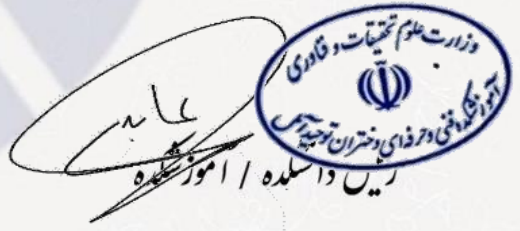 وزارت علوم تحقیقات و فناوری
آموزشکده فنی و حرفه‌ای دختران توحید آمل
رئیس دانشکده / آموزشکده